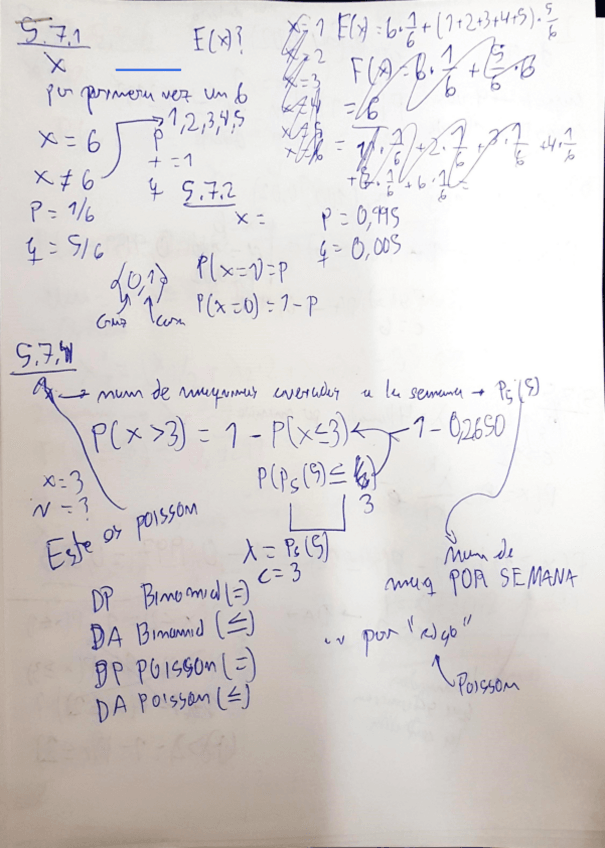 5.7.1
X
E(x)?
por primera vez un 6
x = 6
x ≠ 6
1,2,3,4,5
P = 1/6
q = 5/6
p
+ = 1
q
x = 1
x = 2
x = 3
x = 4
x = 5
x = 6
E(x) = 6 · 1/6 + (1+2+3+4+5) · 5/6
E(x) = 6 · 1/6 + 5/6 · 6
= 6
= 1 · 1/6 + 2 · 1/6 + 3 · 1/6 + 4 · 1/6
+ 5 · 1/6 + 6 · 1/6 =
5.7.2
x =
P = 0,995
q = 0,005
(0,1)
cruz cara
P(x=1) = P
P(x=0) = 1 - P
5.7.4
x → num de maquinas averiadas a la semana → Ps(5)
P(x > 3) = 1 - P(x ≤ 3) ← 1 - 0,2650
P(Ps(5) ≤ 3
x = 3
N = ?
Este es POISSON
λ = Ps(5)
c = 3
num de
maq POR SEMANA
DP Binomial (=)
DA Binomial (≤)
DP POISSON (=)
DA POISSON (≤)
.. por "algo"
POISSON